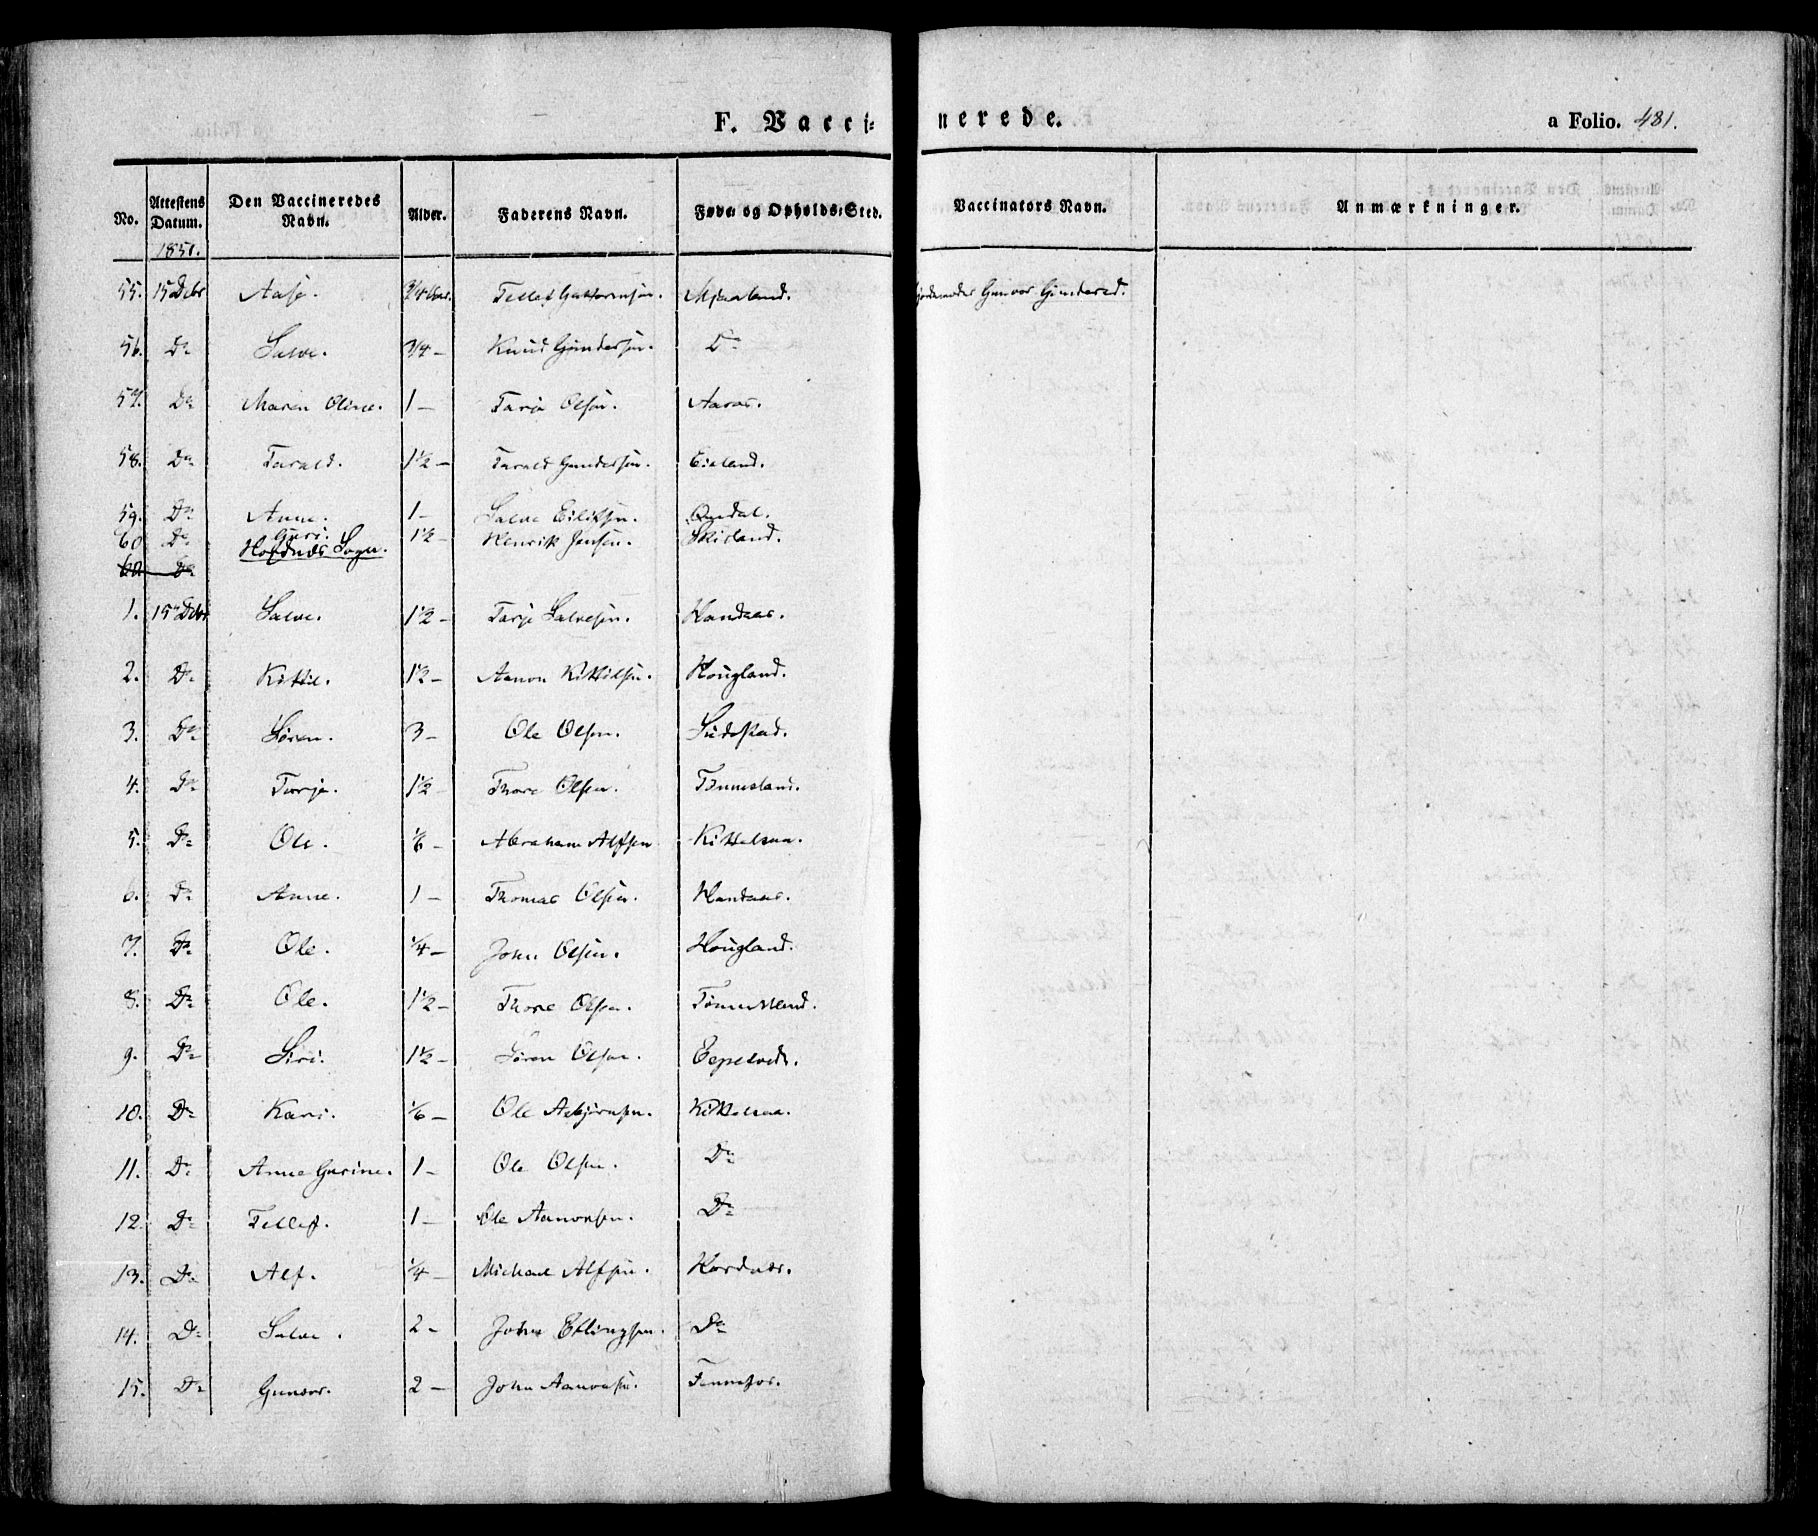 F. Vacci-
nerede.
a Folio. 481.
No. Attestens Datum. Den Vaccineredes Navn. Alder. Faderens Navn. Føde- og Opholds-Sted. Vaccinators Navn. Anmærkninger.
1851.
55. 15 Debr Aase. 3/4 Aar. Tellef Guttormsen. Mjaaland. Jordemoder Gunvor Gundersd.
56. Do Salve. 3/4 – Knud Gundersen. Do
57. Do Maren Oline. 1 – Tarje Olsen. Aaraas.
58. Do Tarald. 1 1/2 – Tarald Gundersen. Eieland.
59. Do Anne. 1 – Salve Eiliksen. Omdal.
60 Do Guri. 1 1/2 Henrik Jensen. Skisland.
Hordnæs Sogn.
60 Do
1. 15de Debr Salve. 1 1/2 – Tarje Salvesen. Handaas.
2. Do Kittil. 1 1/2 – Aanon Kittilsen. Hougland.
3. Do Søren. 3 – Ole Olsen. Sudestad.
4. Do Tarje. 1 1/2 Thore Olsen. Tønnesland.
5. Do Ole. 1/6 – Abraham Alfsen Kittelsaa.
6. Do Anne. 1 – Thomas Olsen. Handaas.
7. Do Ole. 1/4 – John Olsen. Hougland.
8. Do Ole. 1 1/2 – Thore Olsen. Tønnesland.
9. Do Siri. 1 1/2 – Søren Olsen. Eepelvedt.
10. Do Kari. 1/6 – Ole Asbjørnsen. Kittelsaa.
11. Do Anne Gurine. 1 – Ole Olsen. Do
12. Do Tellef. 1 – Ole Aanonsen. Do
13. Do Alf. 1/4 – Michael Alfsen. Hordnæs.
14. Do Salve. 2 – John Ellingsen. Do
15. Do Gunvor. 2 – John Aanonsen. Fennefos.